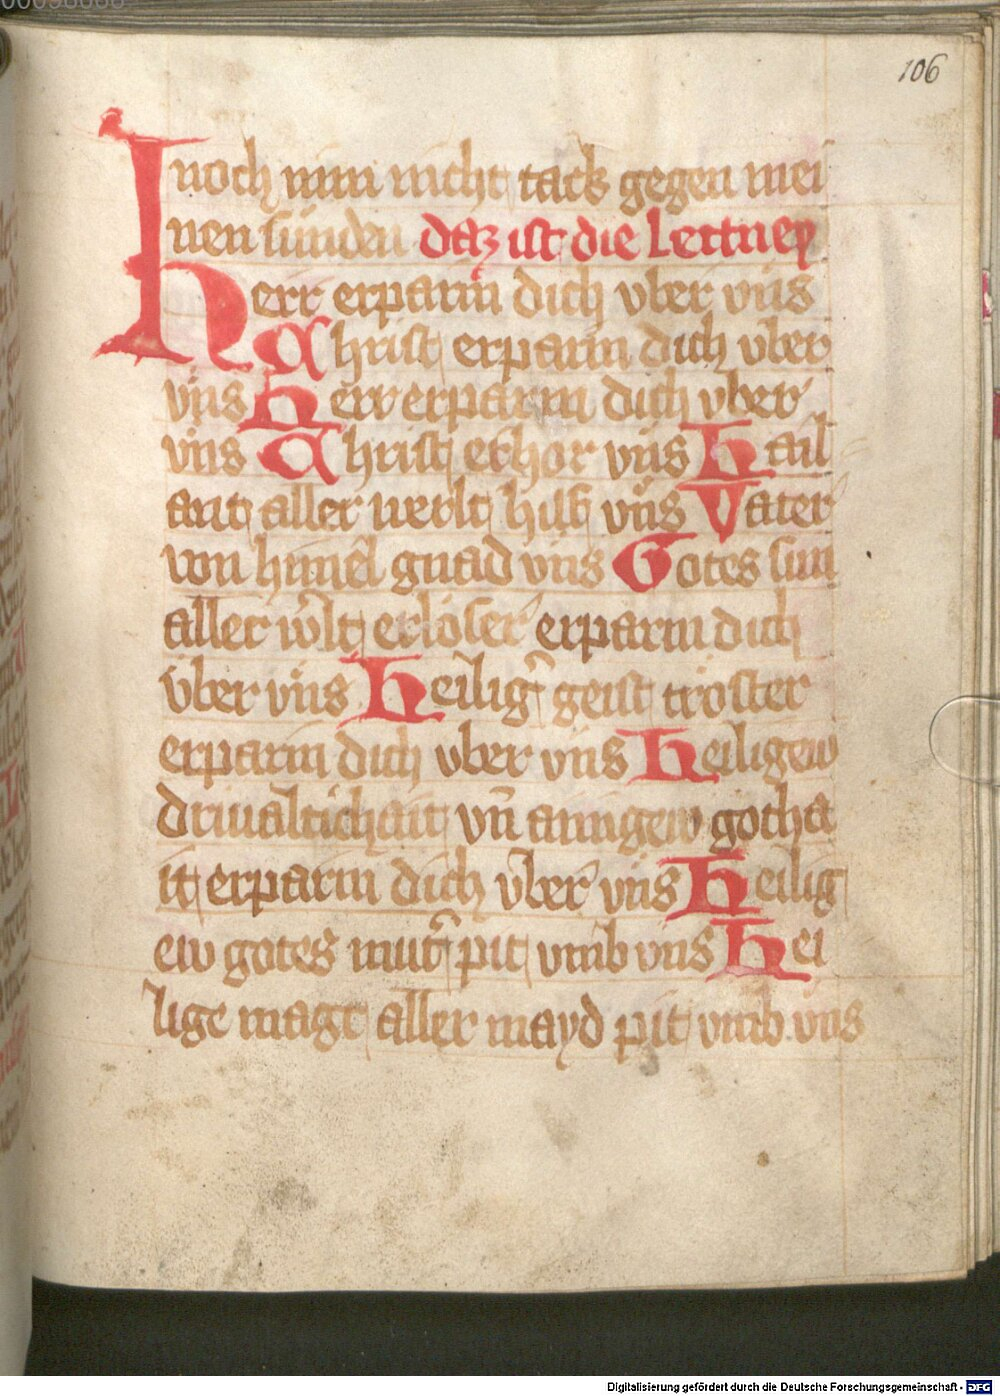 106
noch nim nicht rach gegen mei
nen sünden daz ist die Lettney
Herr erparm dich vber vns
Christ erparm dich vber
vns Herr erparm dich vber
vns Christ erhor vns Hail
ant aller werlt hilf vns Vater
von himel gnad vns Gotes sun
aller w̃lt erlöser erparm dich
über vns Heilig̃ geist tröster
erparm dich vber vns Heiligew
driualtichait vn̄ ainigew gotha
it erparm dich vber vns Heilig
ew gotes mut̃ pit vmb vns Hei
lige magt aller mayd pit vmb vns
Digitalisierung gefördert durch die Deutsche Forschungsgemeinschaft - DFG